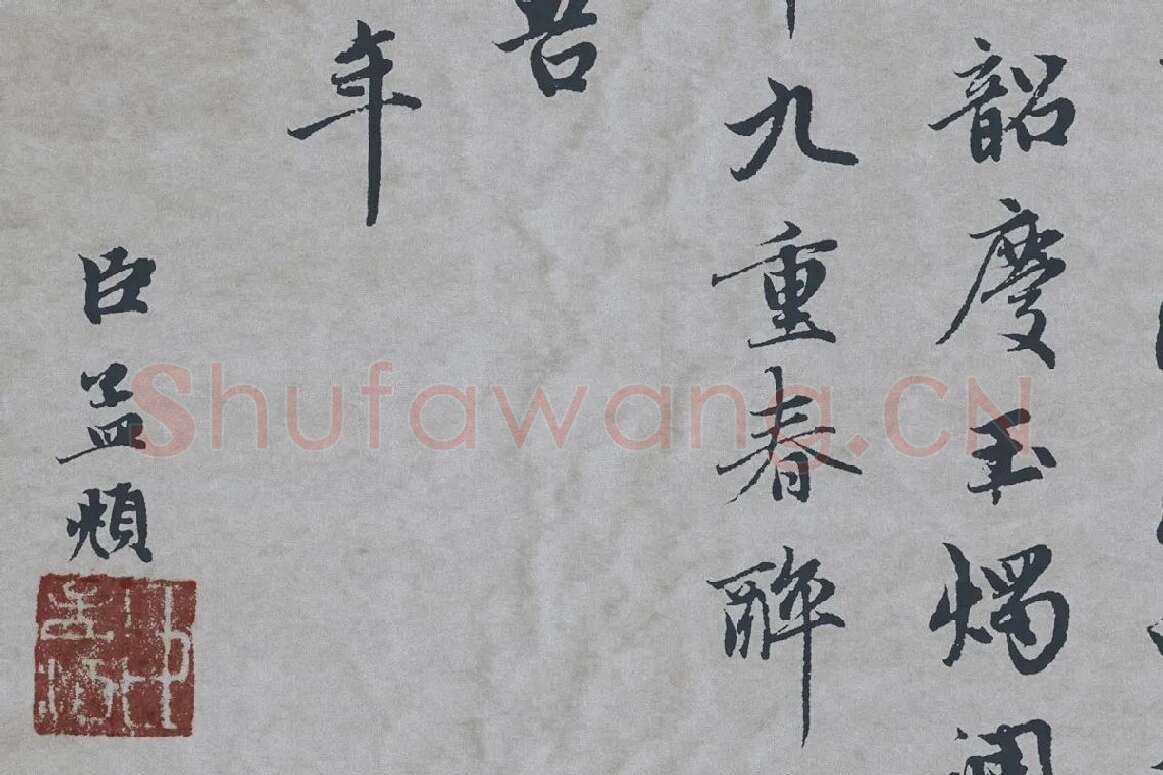 韶慶玉燭調
九重春醉
吾
年
臣孟頫
Shufawang.CN